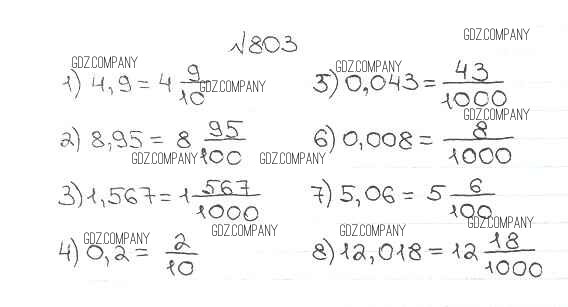 №803
GDZ.COMPANY
GDZ.COMPANY
1) 4,9 = 4 9/10
GDZ.COMPANY
2) 8,95 = 8 95/100
GDZ.COMPANY
GDZ.COMPANY
3) 1,567 = 1 567/1000
GDZ.COMPANY
4) 0,2 = 2/10
GDZ.COMPANY
GDZ.COMPANY
5) 0,043 = 43/1000
GDZ.COMPANY
6) 0,008 = 8/1000
7) 5,06 = 5 6/100
GDZ.COMPANY
GDZ.COMPANY
8) 12,018 = 12 18/1000